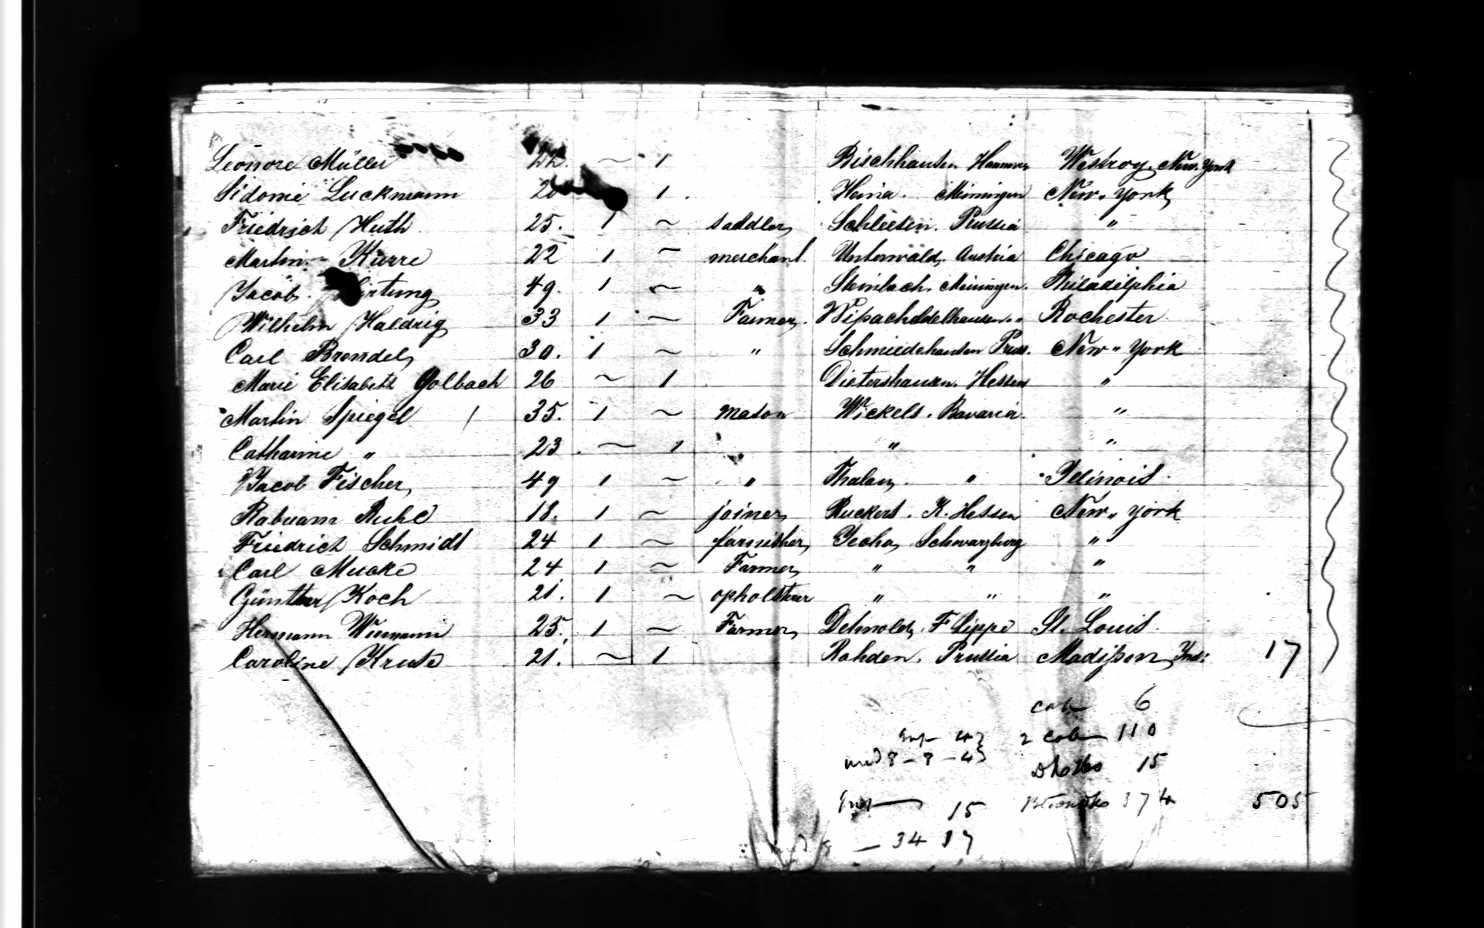 Leonore Müller 22. ~ 1 Bischhausen Hannov Westroy, New York
Sidonie Luckmann 20 1. Heina. Meiningen New York
Friedrich Huth 25. 1 ~ saddler Schleesen. Prussia "
Martin Kurre 22 1 ~ merchant. Unterwald, Austria Chicago
Jacob. 49. 1 ~ " Steinbach. Meiningen. Philadelphia
Wilhelm Haldrig 33 1 ~ Farmer. Rochester
Carl Brendel, 30. 1 ~ " Schmiedehausen Pruss. New York
Marie Elisabeth Golbach 26 ~ 1 Dietershausen. Hessen "
Martin Spiegel / 35. 1 ~ mason Wickels. Bavaria. "
Catharine " 23 ~ 1 " "
Jacob Fischer, 49 1 ~ " Thalau, " Illinois.
Rabuam Ruhl 18. 1 ~ joiner, Ruckers. K. Hessen New York
Friedrich Schmidt 24 1 ~ farnisher, Jecha, Schwarzburg "
Carl Mucke 24 1 ~ Farmer, " " "
Günther Koch 21. 1 ~ opholsterer " " "
Hermann Wiemann 25. 1 ~ Farmer, Detmold, F Lippe St. Louis.
Caroline Kruse 21. ~ 1 Rahden. Prussia Madison, Ind: 17
cab 6
2 cab 110
8 – 8 – 4
15
15 374 505
– 34 17